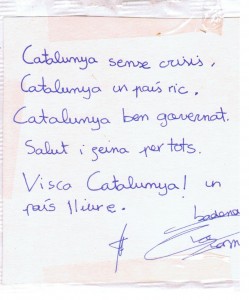 Catalunya sense crisis.
Catalunya un país ric.
Catalunya ben governat.
Salut i feina per tots.
Visca Catalunya! un
país lliure.